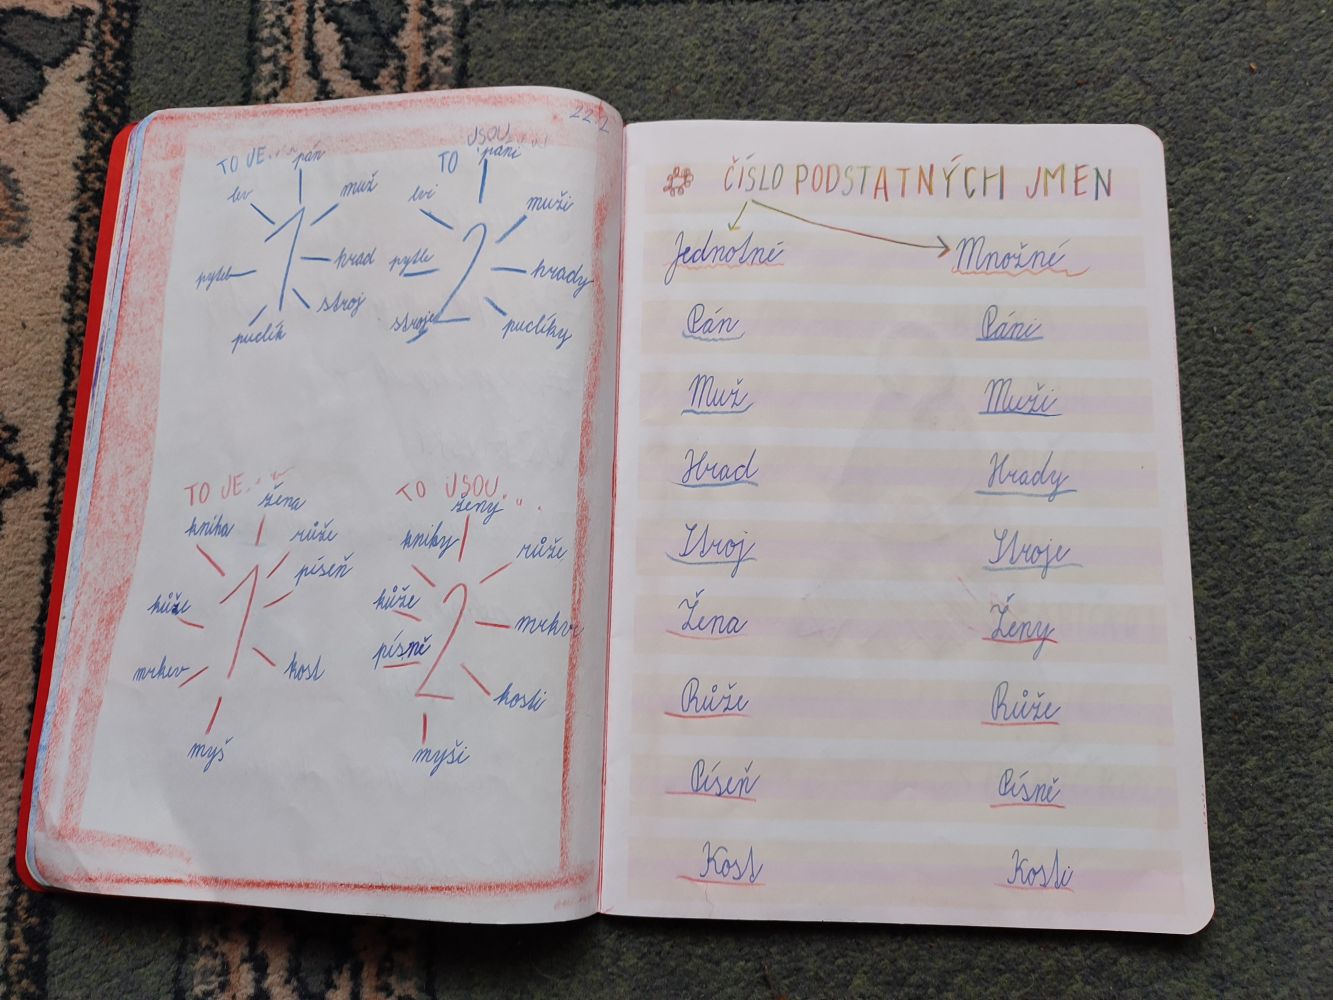 22.2
TO JE... pán
lev
muž
pytel
hrad
stroj
puclík
TO JSOU...
páni
lvi
muži
pytle
hrady
stroje
puclíky
TO JE...
žena
kniha
růže
píseň
kůže
mrkev
kost
myš
TO JSOU...
ženy
knihy
růže
kůže
mrkve
písně
kosti
myši
ČÍSLO PODSTATNÝCH JMEN
Jednotné Množné
Pán Páni
Muž Muži
Hrad Hrady
Stroj Stroje
Žena Ženy
Růže Růže
Píseň Písně
Kost Kosti